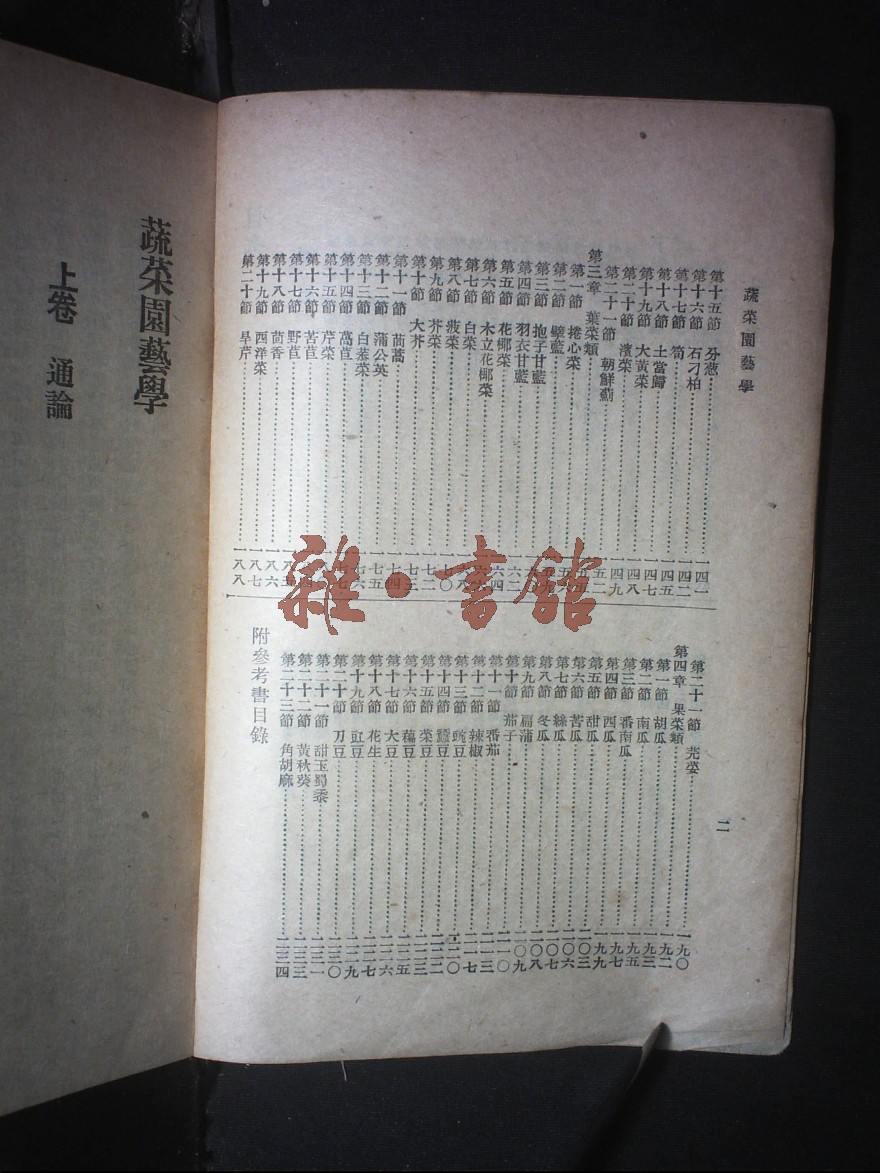 蔬菜園藝學
第十五節 芬葱 一四一
第十六節 石刁柏 一四二
第十七節 筍 一四五
第十八節 土當歸 一四七
第十九節 大黃菜 一四八
第二十節 濱菜 一四九
第二十一節 朝鮮薊 一五二
第三章 葉菜類
第一節 捲心菜
第二節 甓藍
第三節 抱子甘藍
第四節 羽衣甘藍
第五節 花椰菜
第六節 木立花椰菜
第七節 白菜
第八節 菠菜
第九節 芥菜
第十節 大芥
第十一節 茼蒿
第十二節 蒲公英
第十三節 白菾菜
第十四節 萵苣
第十五節 芹菜
第十六節 苦苣
第十七節 野苣
第十八節 茴香 一八六
第十九節 西洋菜 一八七
第二十節 旱芹 一八八
二
第二十一節 芫荽 一九〇
第四章 果菜類
第一節 胡瓜
第二節 南瓜
第三節 番南瓜
第四節 西瓜
第五節 甜瓜
第六節 苦瓜 二〇六
第七節 絲瓜 二〇七
第八節 冬瓜 二〇八
第九節 扁蒲 二〇九
第十節 茄子 二一〇
第十一節 番茄 二一三
第十二節 辣椒 二一七
第十三節 豌豆 二二〇
第十四節 蠶豆 二二二
第十五節 菜豆 二二三
第十六節 藊豆 二二五
第十七節 大豆 二二六
第十八節 花生 二二七
第十九節 豇豆 二二九
第二十節 刀豆 二三〇
第二十一節 甜玉蜀黍 二三一
第二十二節 黃秋葵 二三三
第二十三節 角胡麻 二三四
附參考書目錄
蔬菜園藝學
上卷 通論
雜·書館